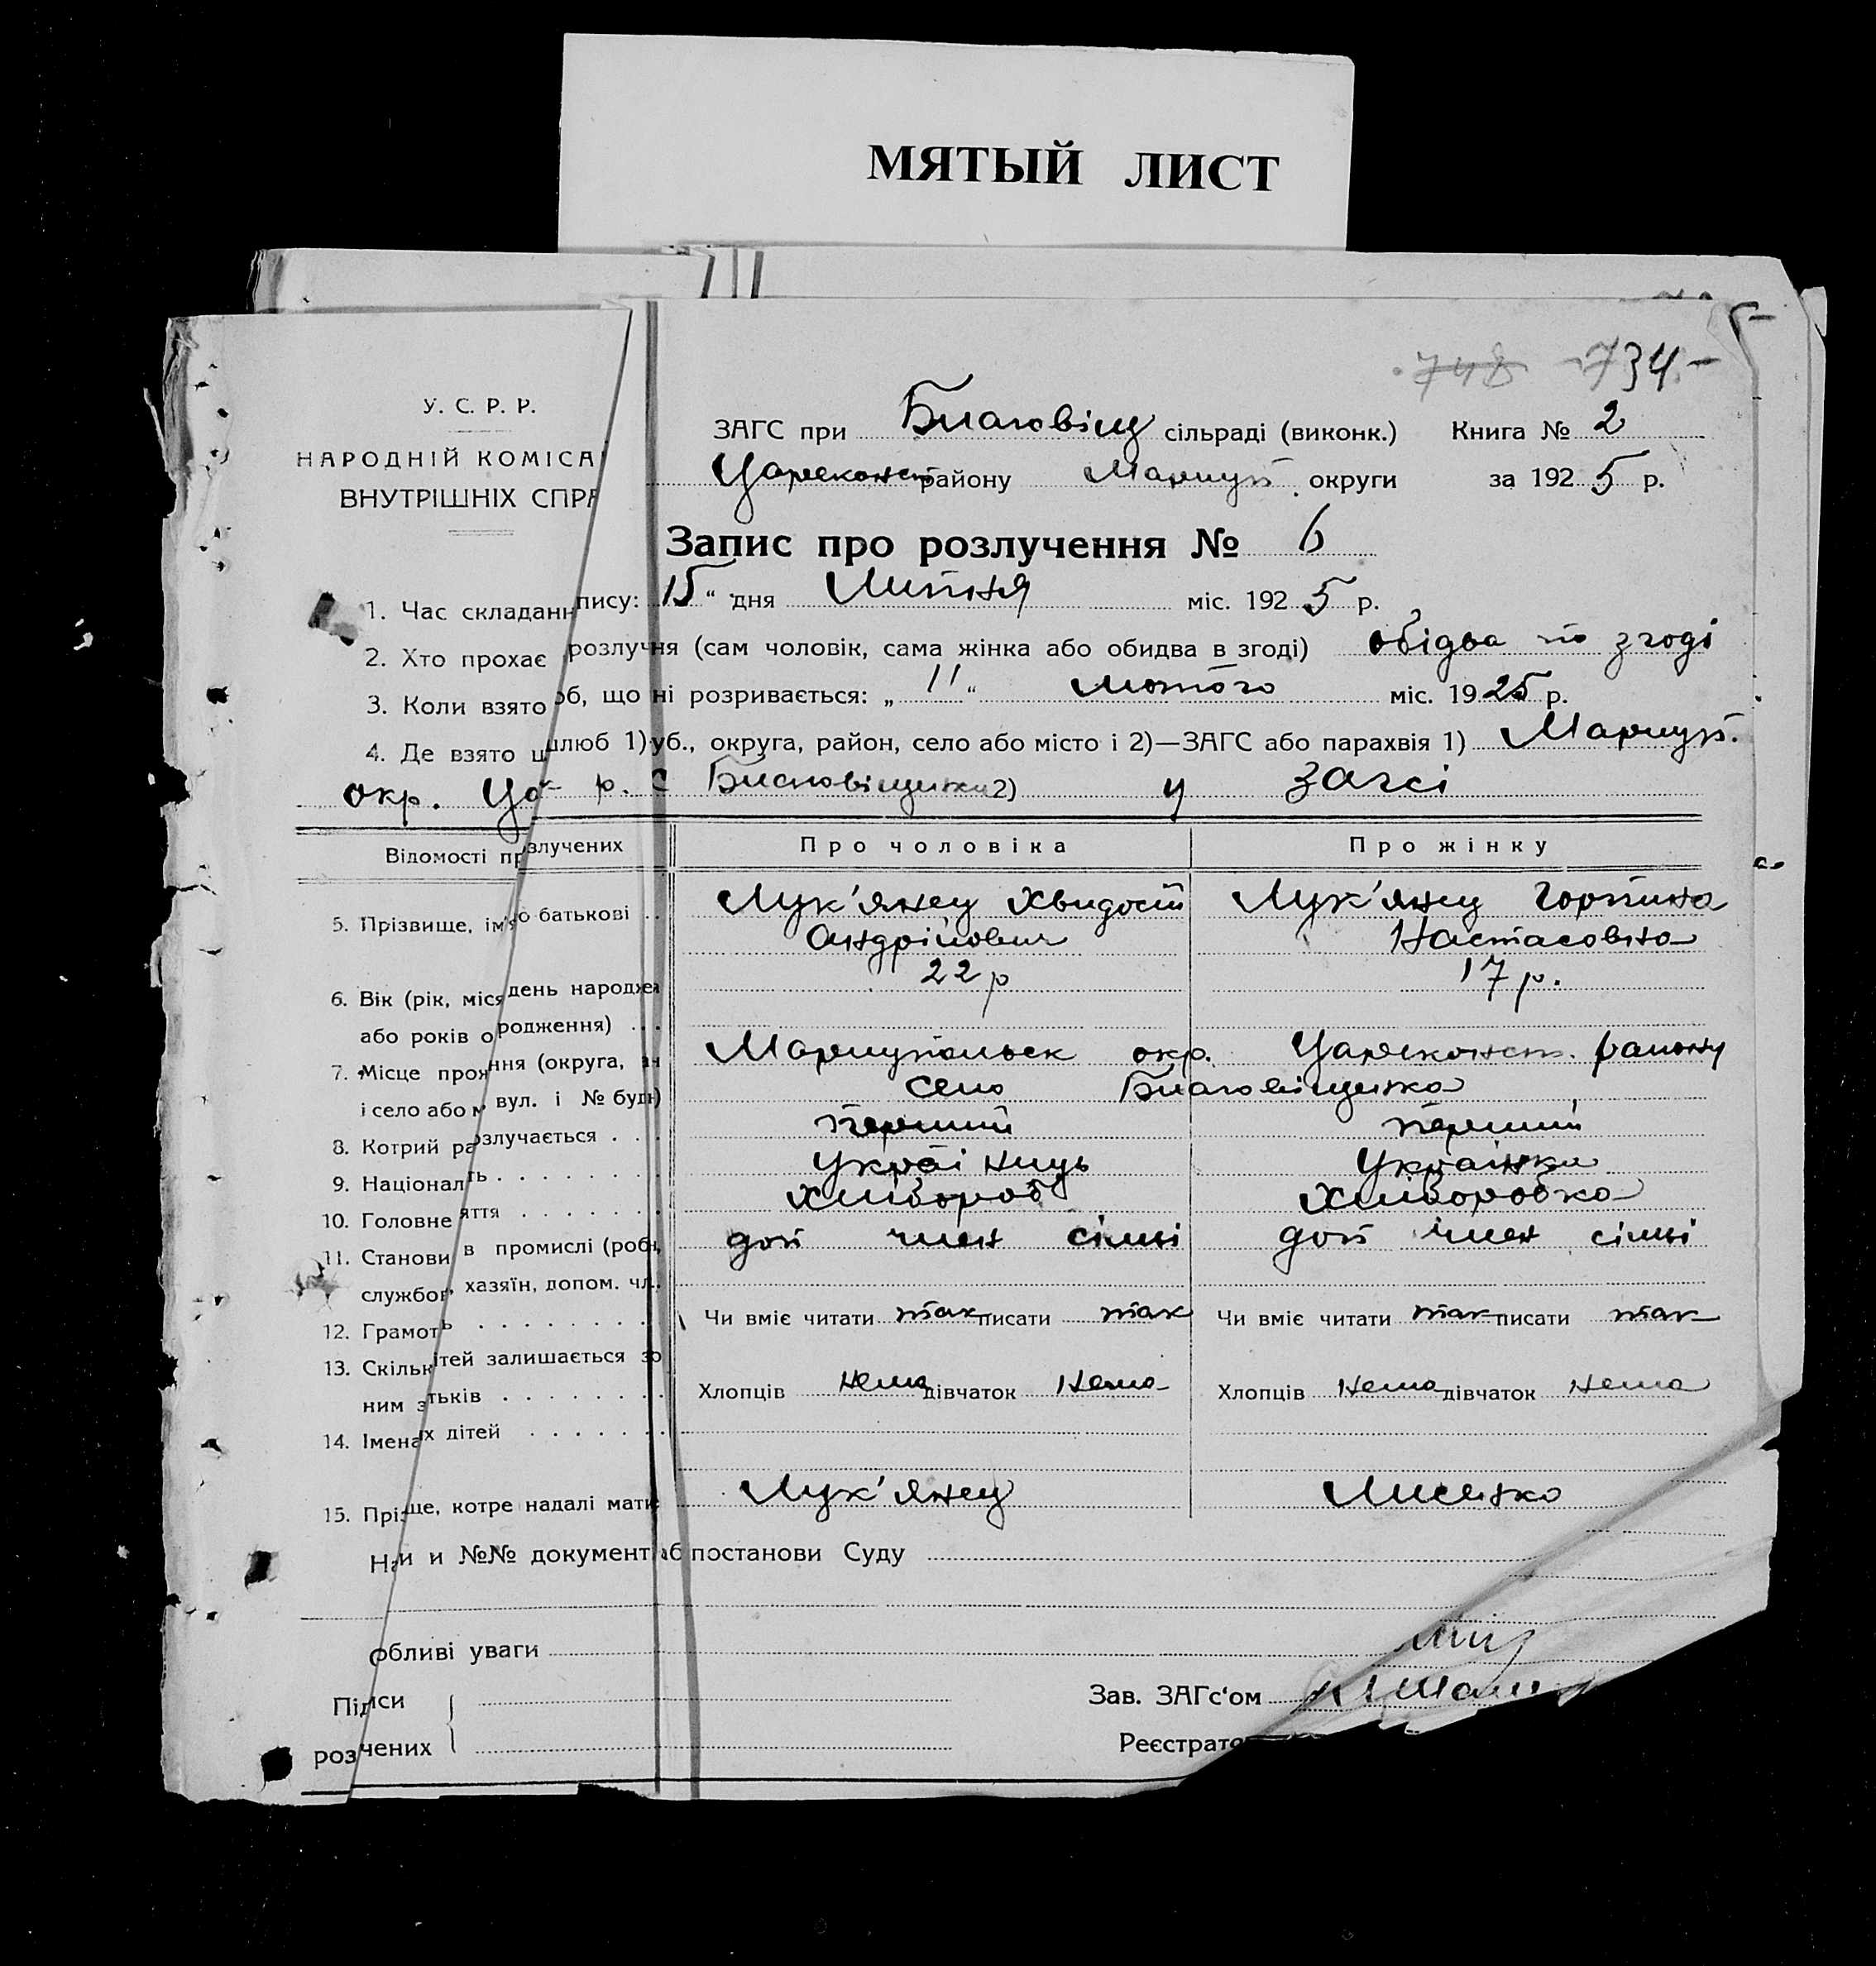 МЯТЫЙ ЛИСТ
748 734
У. С. Р. Р.
НАРОДНІЙ КОМІСА
ВНУТРІШНІХ СПРА
ЗАГС при Благовіщ сільраді (виконк.) Книга № 2
Цареконст району Мариуп. округи за 1925 р.
Запис про розлучення № 6
1. Час складанн пису: 15 " дня Липня міс. 1925 р.
2. Хто прохає розлучня (сам чоловік, сама жінка або обидва в згоді) обідва по згоді
3. Коли взято об, що ні розривається: „ 11 " лютого міс. 1925 р.
4. Де взято ш люб 1) уб., округа, район, село або місто і 2)—ЗАГС або парахвія 1) Мариуп.
окр. Ца р. с Благовіщенка 2) у Загсі
Відомості пр злучених Про чоловіка Про жінку
5. Прізвище, ім'я о батькові Лук'янец Хвидост Лук'янец Горпина
Андрійович Настасовна
6. Вік (рік, міся день народжен 22 р 17 р.
або років о родження)
7. Місце прож ння (округа, Мариупольск окр. Царсконст. району
і село або м вул. і № буд) село Благовіщенка
8. Котрий ра злучається перший перший
9. Націонал ть Украінець Украінка
10. Головне яття Хлібороб Хліборобка
11. Станови в промислі (роб доп член сімьі доп член сімьі
службов хазяїн, допом. чл.
12. Грамот ь Чи вміє читати так писати так Чи вміє читати так писати так
13. Скільк ітей залишається
ним з тьків Хлопців нема дівчаток нема Хлопців нема дівчаток нема
14. Імена їх дітей
15. Прі ще, котре надалі мати Лук'янец Лисенко
На и и №№ документ аб постанови Суду
обливі уваги
Під иси Зав. ЗАГс'ом
роз чених Реєстрато